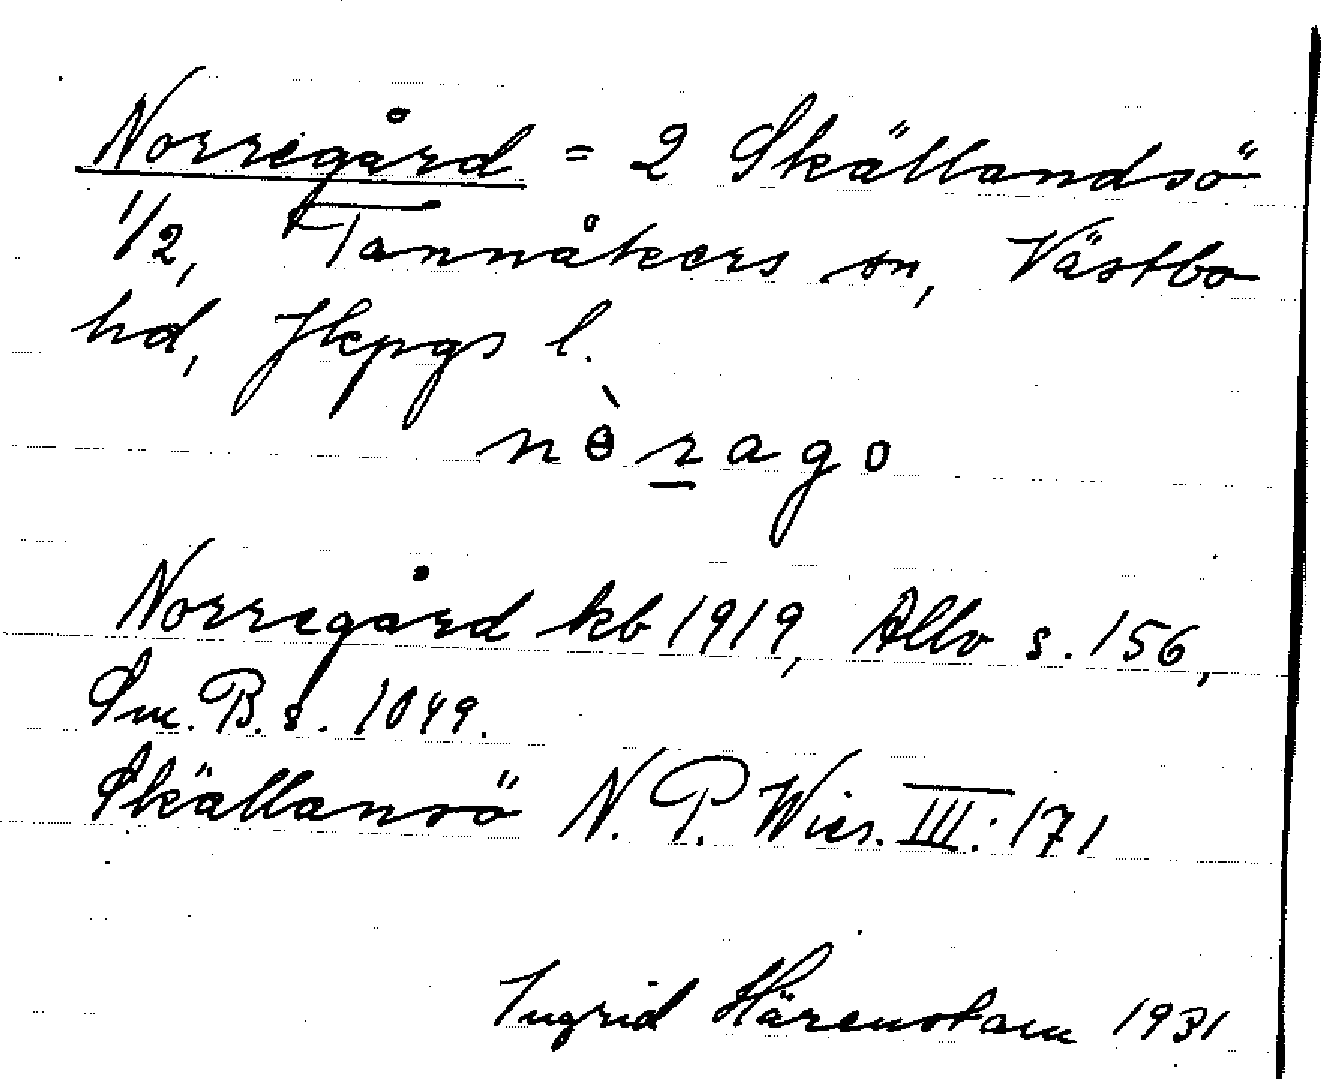 Norregård = 2 Skällandsö
1/2, Tannåkers sn, Västbo
hd, Jkpgs l.
nè̵rago
Norregård kb 1919, Allvo s. 156,
Sm. B. s. 1049.
Skällansö N. P. Wies. III: 171
Ingrid Härenstam 1931